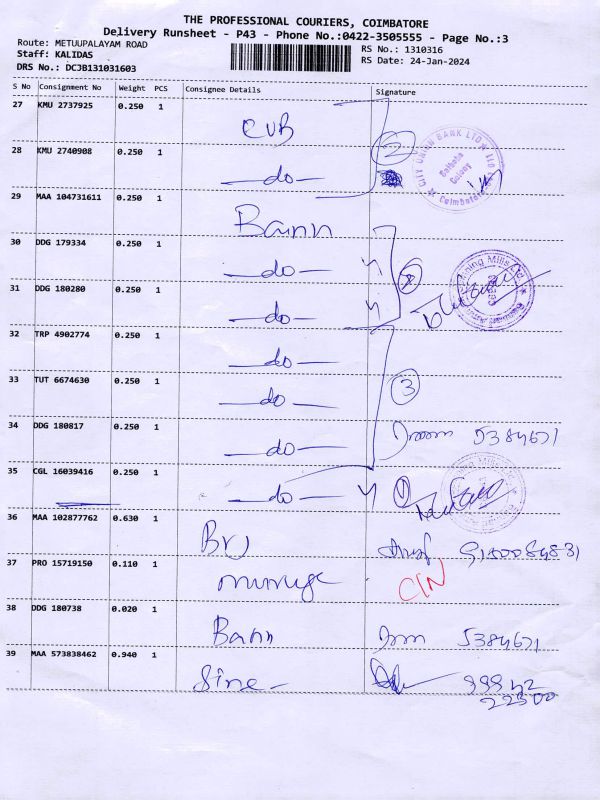 THE PROFESSIONAL COURIERS, COIMBATORE
Delivery Runsheet - P43 - Phone No.:0422-3505555 - Page No.:3
Route: METUUPALAYAM ROAD
Staff: KALIDAS
DRS No.: DCJB131031603
RS No.: 1310316
RS Date: 24-Jan-2024
S No Consignment No Weight PCS Consignee Details Signature
27 KMU 2737925 0.250 1 CUB
28 KMU 2740908 0.250 1 —do— 2
CITY UNION BANK LTD
Colony
Coimbatore
29 MAA 104731611 0.250 1 Bann
30 DDG 179334 0.250 1 —do—
31 DDG 180280 0.250 1 —do—
Mills Ltd
32 TRP 4902774 0.250 1 —do—
33 TUT 6674630 0.250 1 —do— 3
34 DDG 180817 0.250 1 —do— 5384671
35 CGL 16039416 0.250 1 —do— 1
36 MAA 102877762 0.630 1
37 PRO 15719150 0.110 1 CIN
38 DDG 180738 0.020 1 Bann 5384671
39 MAA 573838462 0.940 1 99942
22500